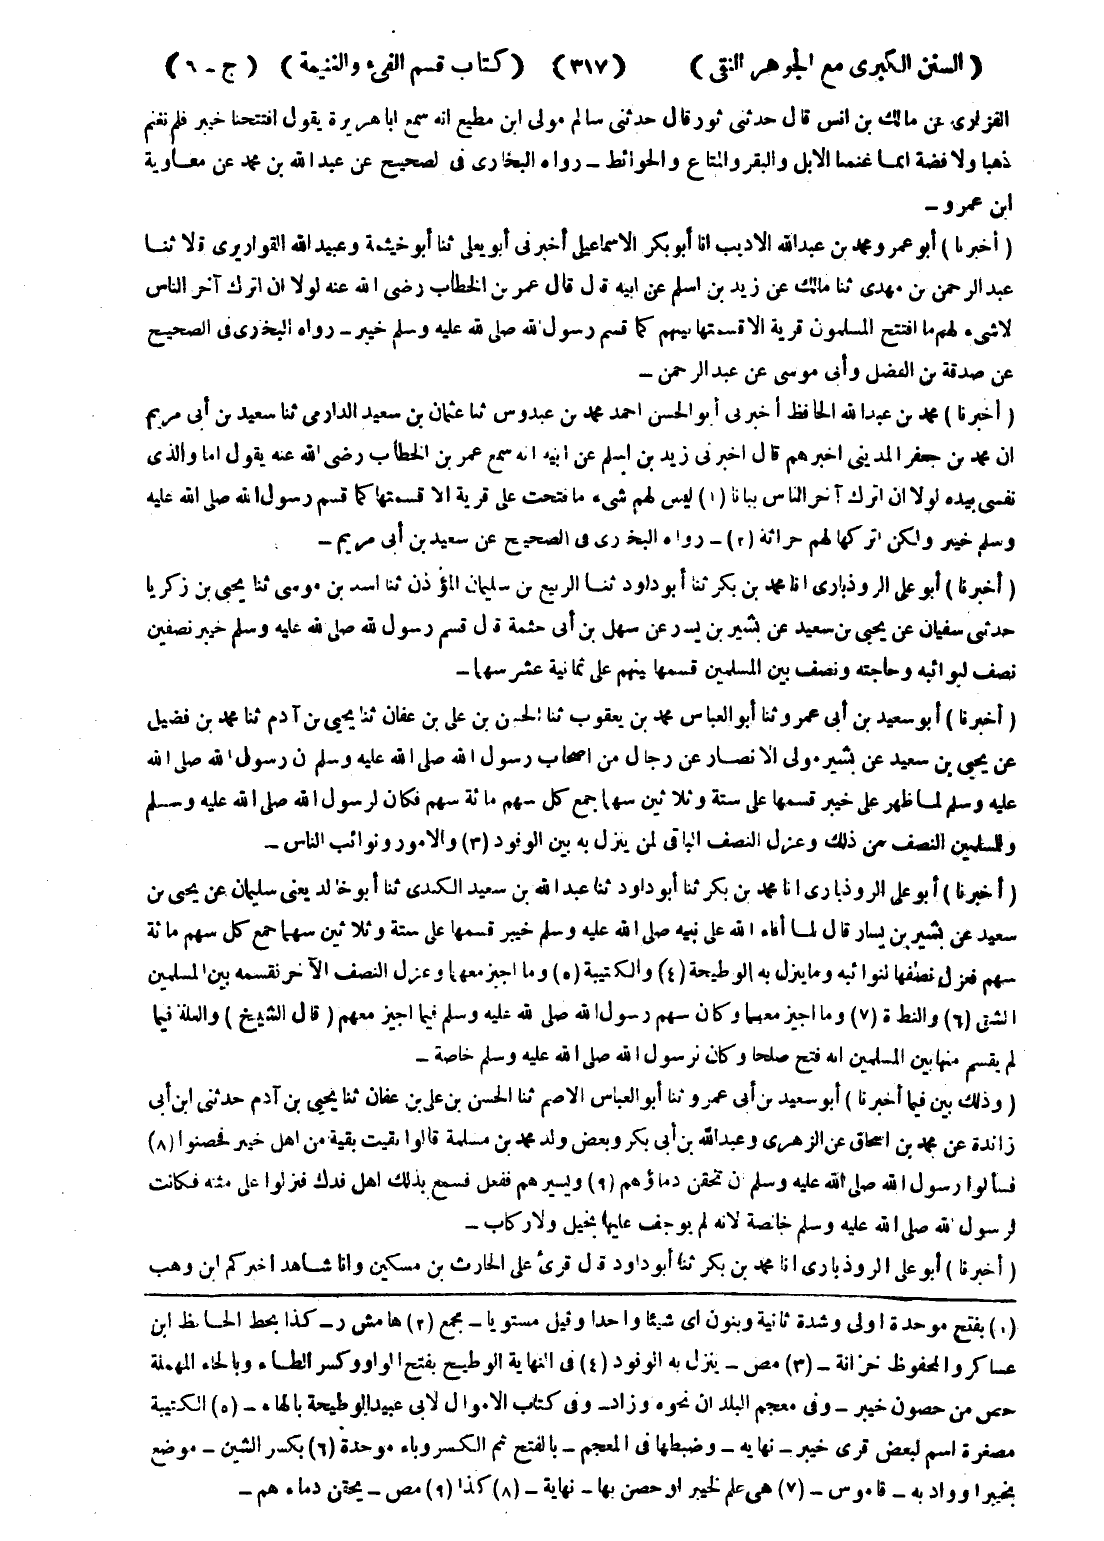 ( السنن الكبرى مع الجوهر النقى ) (٣١٧) (كتاب قسم الفىء والغنيمة ) ( ج - ٦ )
الفزارى عن مالك بن انس قال حدثنى ثور قال حدثنى سالم مولى ابن مطيع انه سمع ابا هريرة يقول افتتحنا خيبر فلم نغنم
ذهبا ولا فضة انما غنمنا الابل والبقر والمتاع والحوائط - رواه البخارى فى الصحيح عن عبد الله بن محمد عن معاوية
ابن عمرو -
( أخبرنا ) أبو عمرو محمد بن عبدالله الاديب انا أبو بكر الاسماعيلى أخبرنى أبو يعلى ثنا أبو خيثمة وعبيد الله القواريرى قالا ثنا
عبد الرحمن بن مهدى ثنا مالك عن زيد بن اسلم عن ابيه قال قال عمر بن الخطاب رضى الله عنه لولا ان اترك آخر الناس
لا شىء لهم ما افتتح المسلمون قرية الا قسمتها بينهم كما قسم رسول الله صلى الله عليه وسلم خيبر - رواه البخارى فى الصحيح
عن صدقة بن الفضل وأبى موسى عن عبد الرحمن -
( أخبرنا ) محمد بن عبد الله الحافظ أخبرنى أبو الحسن احمد محمد بن عبدوس ثنا عثمان بن سعيد الدارمى ثنا سعيد بن أبى مريم
ان محمد بن جعفر المدينى اخبرهم قال اخبرنى زيد بن اسلم عن ابيه انه سمع عمر بن الخطاب رضى الله عنه يقول اما والذى
نفسى بيده لولا ان اترك آخر الناس ببانا (١) ليس لهم شىء ما فتحت على قرية الا قسمتها كما قسم رسول الله صلى الله عليه
وسلم خيبر ولكن اتركها لهم حراثة (٢) - رواه البخارى فى الصحيح عن سعيد بن أبى مريم -
( أخبرنا ) أبو على الروذبارى انا محمد بن بكر ثنا أبو داود ثنا الربيع بن سليمان المؤذن ثنا اسد بن موسى ثنا يحيى بن زكريا
حدثنى سفيان عن يحيى بن سعيد عن بشير بن يسار عن سهل بن أبى حثمة قال قسم رسول الله صلى الله عليه وسلم خيبر نصفين
نصف لنوائبه وحاجته ونصف بين المسلمين قسمها بينهم على ثمانية عشر سهما -
( أخبرنا ) أبو سعيد بن أبى عمرو ثنا أبو العباس محمد بن يعقوب ثنا الحسن بن على بن عفان ثنا يحيى بن آدم ثنا محمد بن فضيل
عن يحيى بن سعيد عن بشير مولى الانصار عن رجال من اصحاب رسول الله صلى الله عليه وسلم ان رسول الله صلى الله
عليه وسلم لما ظهر على خيبر قسمها على ستة وثلاثين سهما جمع كل سهم مائة سهم فكان لرسول الله صلى الله عليه وسلم
وللمسلمين النصف من ذلك وعزل النصف الباقى لمن ينزل به بين الوفود (٣) والامور ونوائب الناس -
( أخبرنا ) أبو على الروذبارى انا محمد بن بكر ثنا أبو داود ثنا عبد الله بن سعيد الكندى ثنا أبو خالد يعنى سليمان عن يحيى بن
سعيد عن بشير بن يسار قال لما أفاء الله على نبيه صلى الله عليه وسلم خيبر قسمها على ستة وثلاثين سهما جمع كل سهم مائة
سهم فعزل نصفها لنوائبه وما ينزل به الوطيحة (٤) والكتيبة (٥) وما اجيز معهما وعزل النصف الآخر فقسمه بين المسلمين
الشق (٦) والنطاة (٧) وما اجيز معهما وكان سهم رسول الله صلى الله عليه وسلم فيما اجيز معهم ( قال الشيخ ) والعلة فيما
لم يقسم منها بين المسلمين انه فتح صلحا وكان لرسول الله صلى الله عليه وسلم خاصة -
( وذلك بين فيما أخبرنا ) أبو سعيد بن أبى عمرو ثنا أبو العباس الاصم ثنا الحسن بن على بن عفان ثنا يحيى بن آدم حدثنى ابن أبى
زائدة عن محمد بن اسحاق عن الزهرى وعبدالله بن أبى بكر وبعض ولد محمد بن مسلمة قالوا بقيت بقية من اهل خيبر فحصنوا (٨)
فسألوا رسول الله صلى الله عليه وسلم ان تحقن دماؤهم (٩) ويسيرهم ففعل فسمع بذلك اهل فدك فنزلوا على مثله فكانت
لرسول الله صلى الله عليه وسلم خالصة لانه لم يوجف عليها بخيل ولا ركاب -
( أخبرنا ) أبو على الروذبارى انا محمد بن بكر ثنا أبو داود قال قرئ على الحارث بن مسكين وانا شاهد اخبركم ابن وهب
(١) بفتح موحدة اولى وشدة ثانية وبنون اى شيئا واحدا وقيل مستويا - مجمع (٢) هامش ر - كذا بخط الحافظ ابن
عساكر والمحفوظ خزانة - (٣) مص - ينزل به الوفود (٤) فى النهاية الوطيح بفتح الواو وكسر الطاء وبالحاء المهملة
حصن من حصون خيبر - وفى معجم البلدان نحوه وزاد - وفى كتاب الاموال لابى عبيد الوطيحة بالهاء - (٥) الكتيبة
مصغرة اسم لبعض قرى خيبر - نهاية - وضبطها فى المعجم - بالفتح ثم الكسر وباء موحدة (٦) بكسر الشين - موضع
بخيبر او واد به - قاموس - (٧) هى علم لخيبر او حصن بها - نهاية - (٨) كذا (٩) مص - يحقن دماء هم -